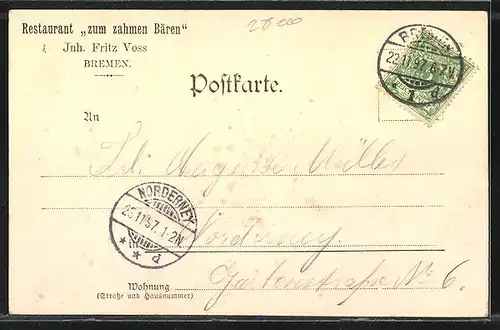 Restaurant „zum zahmen Bären"
Inh. Fritz Voss
BREMEN.
Postkarte.
BREMEN
22.11.97.6-7N.
* 1 d
An
Frl. Auguste Müller
NORDERNEY
23.11.97.1-2N
* * d
Norderney.
Gartenstraße No 6.
Wohnung
(Straße und Hausnummer)